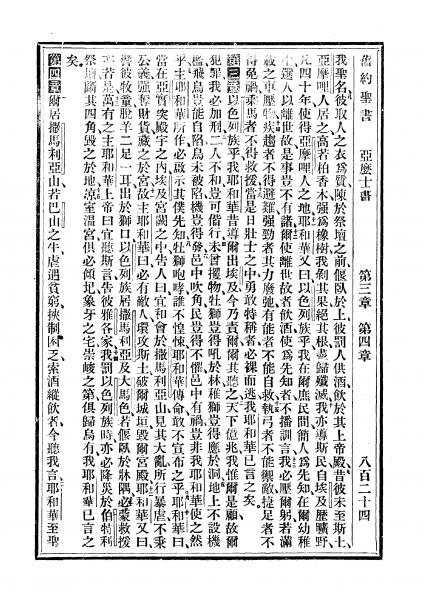 舊約聖書　亞麽士書　第三章　第四章　八百二十四
我聖名彼取人之衣爲質陳於祭壇之前偃臥於上彼罰人供酒飲於其上帝殿昔彼未至斯土、
亞摩哩人居之高若柏香木强爲橡樹我剝其果絕其根蓋歸殲滅我亦導斯民自埃及歷曠野、
凡四十年使得亞摩哩人之地耶和華又曰以色列族乎我在爾庶民間簡人爲先知在爾幼稚
中選人以離世故是事豈不有諸爾使離世故者飲酒使爲先知者不播訓言我必壓爾躬若滿
載之車壓物疾趨者不得避難强勁者其力廢弛有能者不能自救執弓者不能禦敵捷足者不
得免禍乘馬者不得救援當是日壯士之中勇敢特稱者必裸而逃我耶和華已言之矣。
第三章以色列族乎我耶和華昔導爾出埃及今乃責爾爾其聽之天下億兆我惟爾是顧故爾
犯罪我必加刑二人不和豈可偕行未曾攫物牡獅豈得吼於林稚獅豈得應於洞地上不設機
檻飛鳥豈能自陷鳥未被陷機豈得發邑中吹角民豈得不懼邑中有禍豈非我耶和華使之然
乎主耶和華所作必啟示其僕先知牡獅咆哮誰不惶悚耶和華傳命敢不宣布之乎耶和華曰、
當在亞實突殿宇之內埃及宮闕之中告人曰宜會於撒馬利亞山見其大亂所行暴虐不秉
公義强奪財貨藏之於宮故主耶和華曰必有敵人環攻斯土破爾城垣毀爾宮殿耶和華又曰、
譬彼牧童脫羊二足一耳出於獅口以色列族居撒馬利亞及大馬色若偃臥於牀隅必蒙救援
亦若是萬有之主耶和華上帝曰宜聽斯言告彼雅各家我罰以色列族時亦必降災於伯特利
祭壇斷其四角毀之於地涼室溫宮俱必傾圮象牙之宅崇峻之第俱歸烏有我耶和華已言之
矣。
第四章爾居撒馬利亞山若巴山之牛虐遇貧窮挾制困乏索酒縱飲者今聽我言耶和華至聖